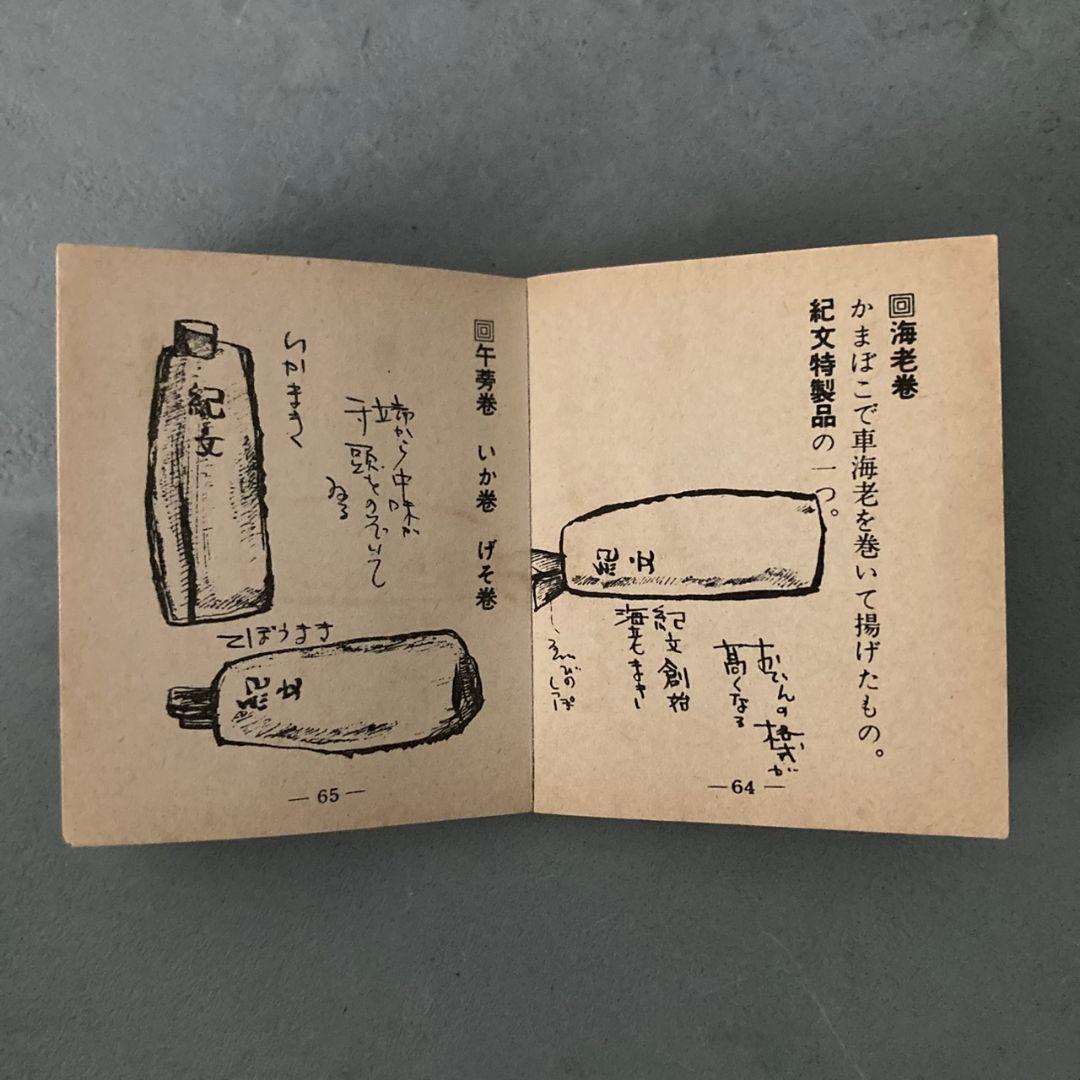 回海老巻
かまぼこで車海老を巻いて揚げたもの。
紀文特製品の一つ。
おでんの格が
高くなる
紀文創始
海老まき
ゑびのしっぽ
紀文
—64—
回午蒡巻 いか巻 げそ巻
端から中味が
寸頭をのぞいて
ゐる
いかまき
紀文
ごぼうまき
紀文
—65—